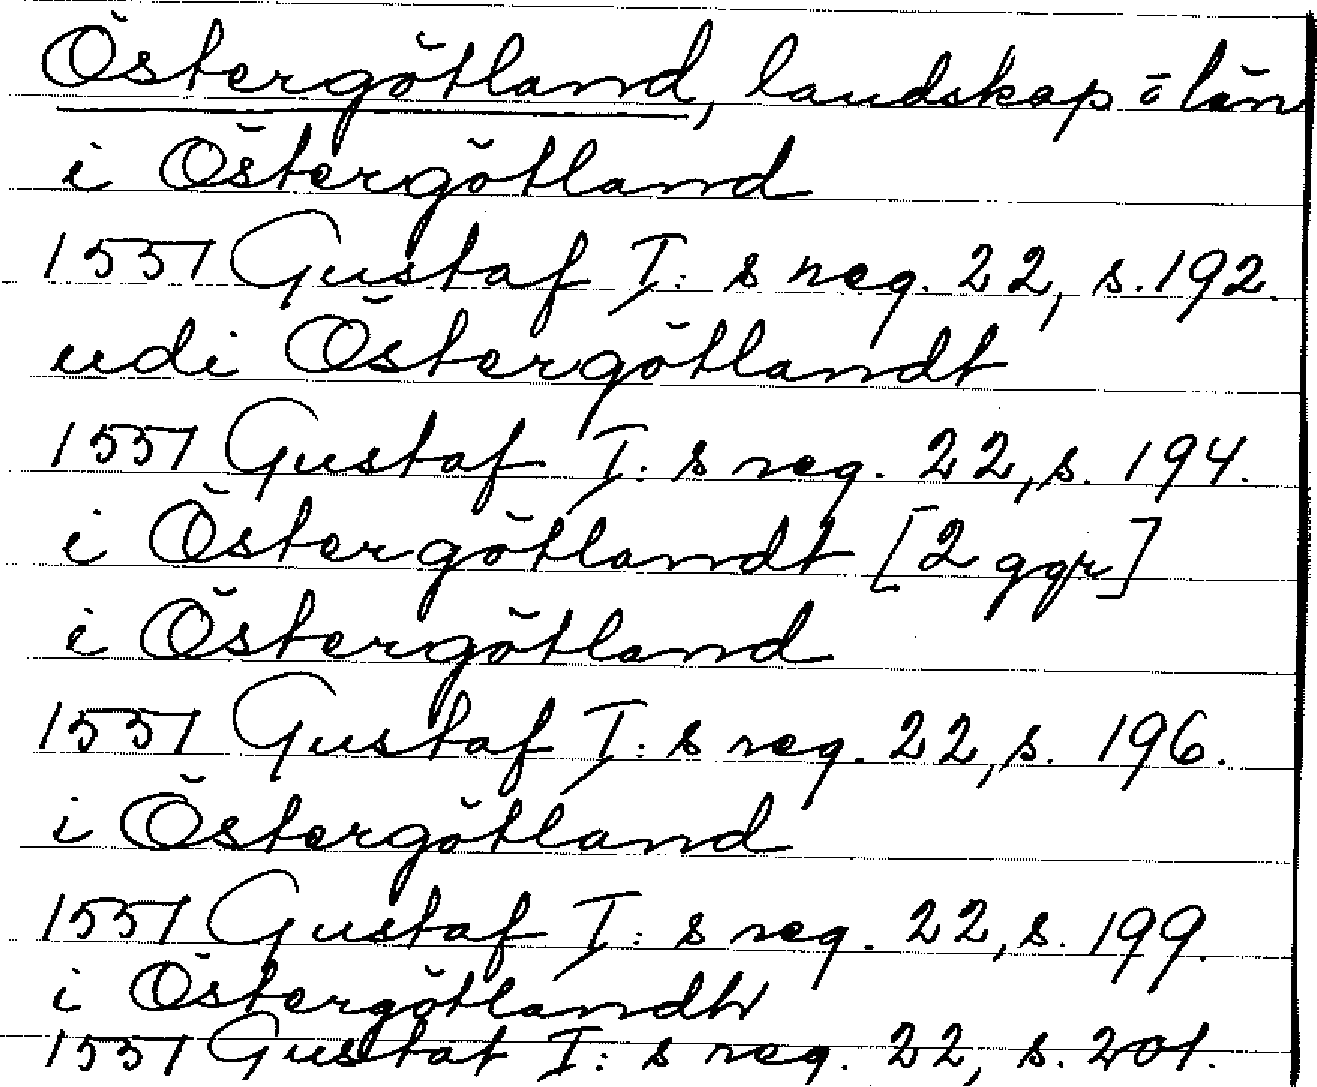 Östergötland, landskap ō län
i Östergötland
1551 Gustaf I: s reg. 22, s. 192.
udi Östergötlandt
1551 Gustaf I: s reg. 22, s. 194.
i Östergötlandt [2 ggr]
i Östergötland
1551 Gustaf I: s reg. 22, s. 196.
i Östergötland
1551 Gustaf I: s reg. 22, s. 199.
i Östergötlandh
1551 Gustaf I: s reg. 22, s. 201.